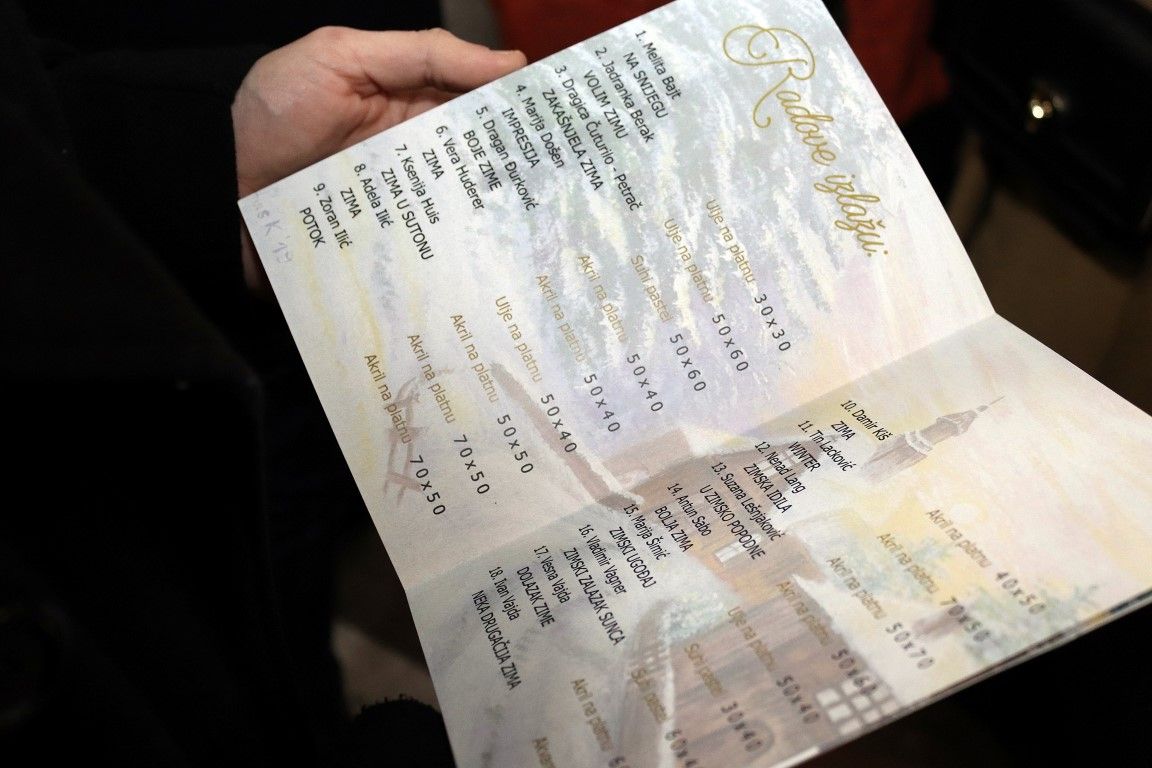 Radove izlažu:
1. Melita Bajt
NA SNIJEGU Ulje na platnu 30x30
2. Jadranka Berak
VOLIM ZIMU Ulje na platnu 50x60
3. Dragica Čuturilo - Petrač
ZAKAŠNJELA ZIMA Suhi pastel 50x60
4. Marija Došen
IMPRESIJA Akril na platnu 50x40
5. Dragan Đurković
BOJE ZIME Akril na platnu 50x40
6. Vera Huderer
ZIMA Ulje na platnu 50x40
7. Ksenija Huis
ZIMA U SUTONU Akril na platnu 50x50
8. Adela Ilić
ZIMA Akril na platnu 70x50
9. Zoran Ilić
POTOK Akril na platnu 70x50
10. Damir Kiš
ZIMA Akril na platnu 40x50
11. Tin Lacković
WINTER Akril na platnu 70x50
12. Nenad Lang
ZIMSKA IDILA Akril na platnu 50x70
13. Suzana Lešnjaković
U ZIMSKO POPODNE Akril na platnu 50x60
14. Antun Sabo
BOLJA ZIMA Ulje na platnu 50x40
15. Marija Šimić
ZIMSKI UGOĐAJ Suhi pastel 30x40
16. Vladimir Vagner
ZIMSKI ZALAZAK SUNCA Suhi pastel
17. Vesna Vajda
DOLAZAK ZIME Akril na platnu
18. Ivan Vajda
NEKA DRUGAČIJA ZIMA